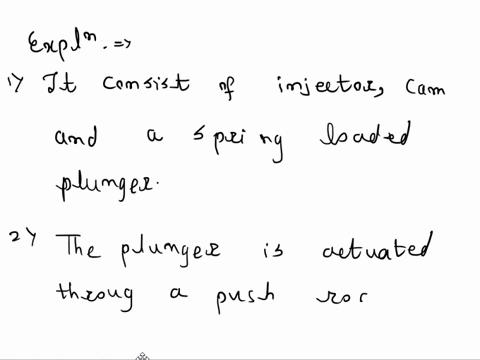 Explⁿ. =>
1) It consist of injector, cam
and a spring loaded
plunger.
2) The plunger is actuated
throug a push roc